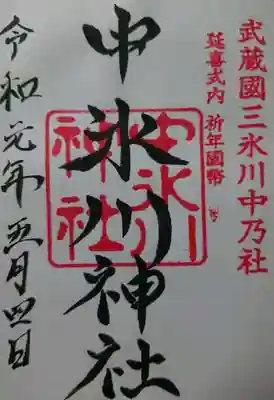 武蔵國三氷川中乃社
延喜式内 祈年國幣
中氷川神社
中氷川
神社
令和元年五月四日